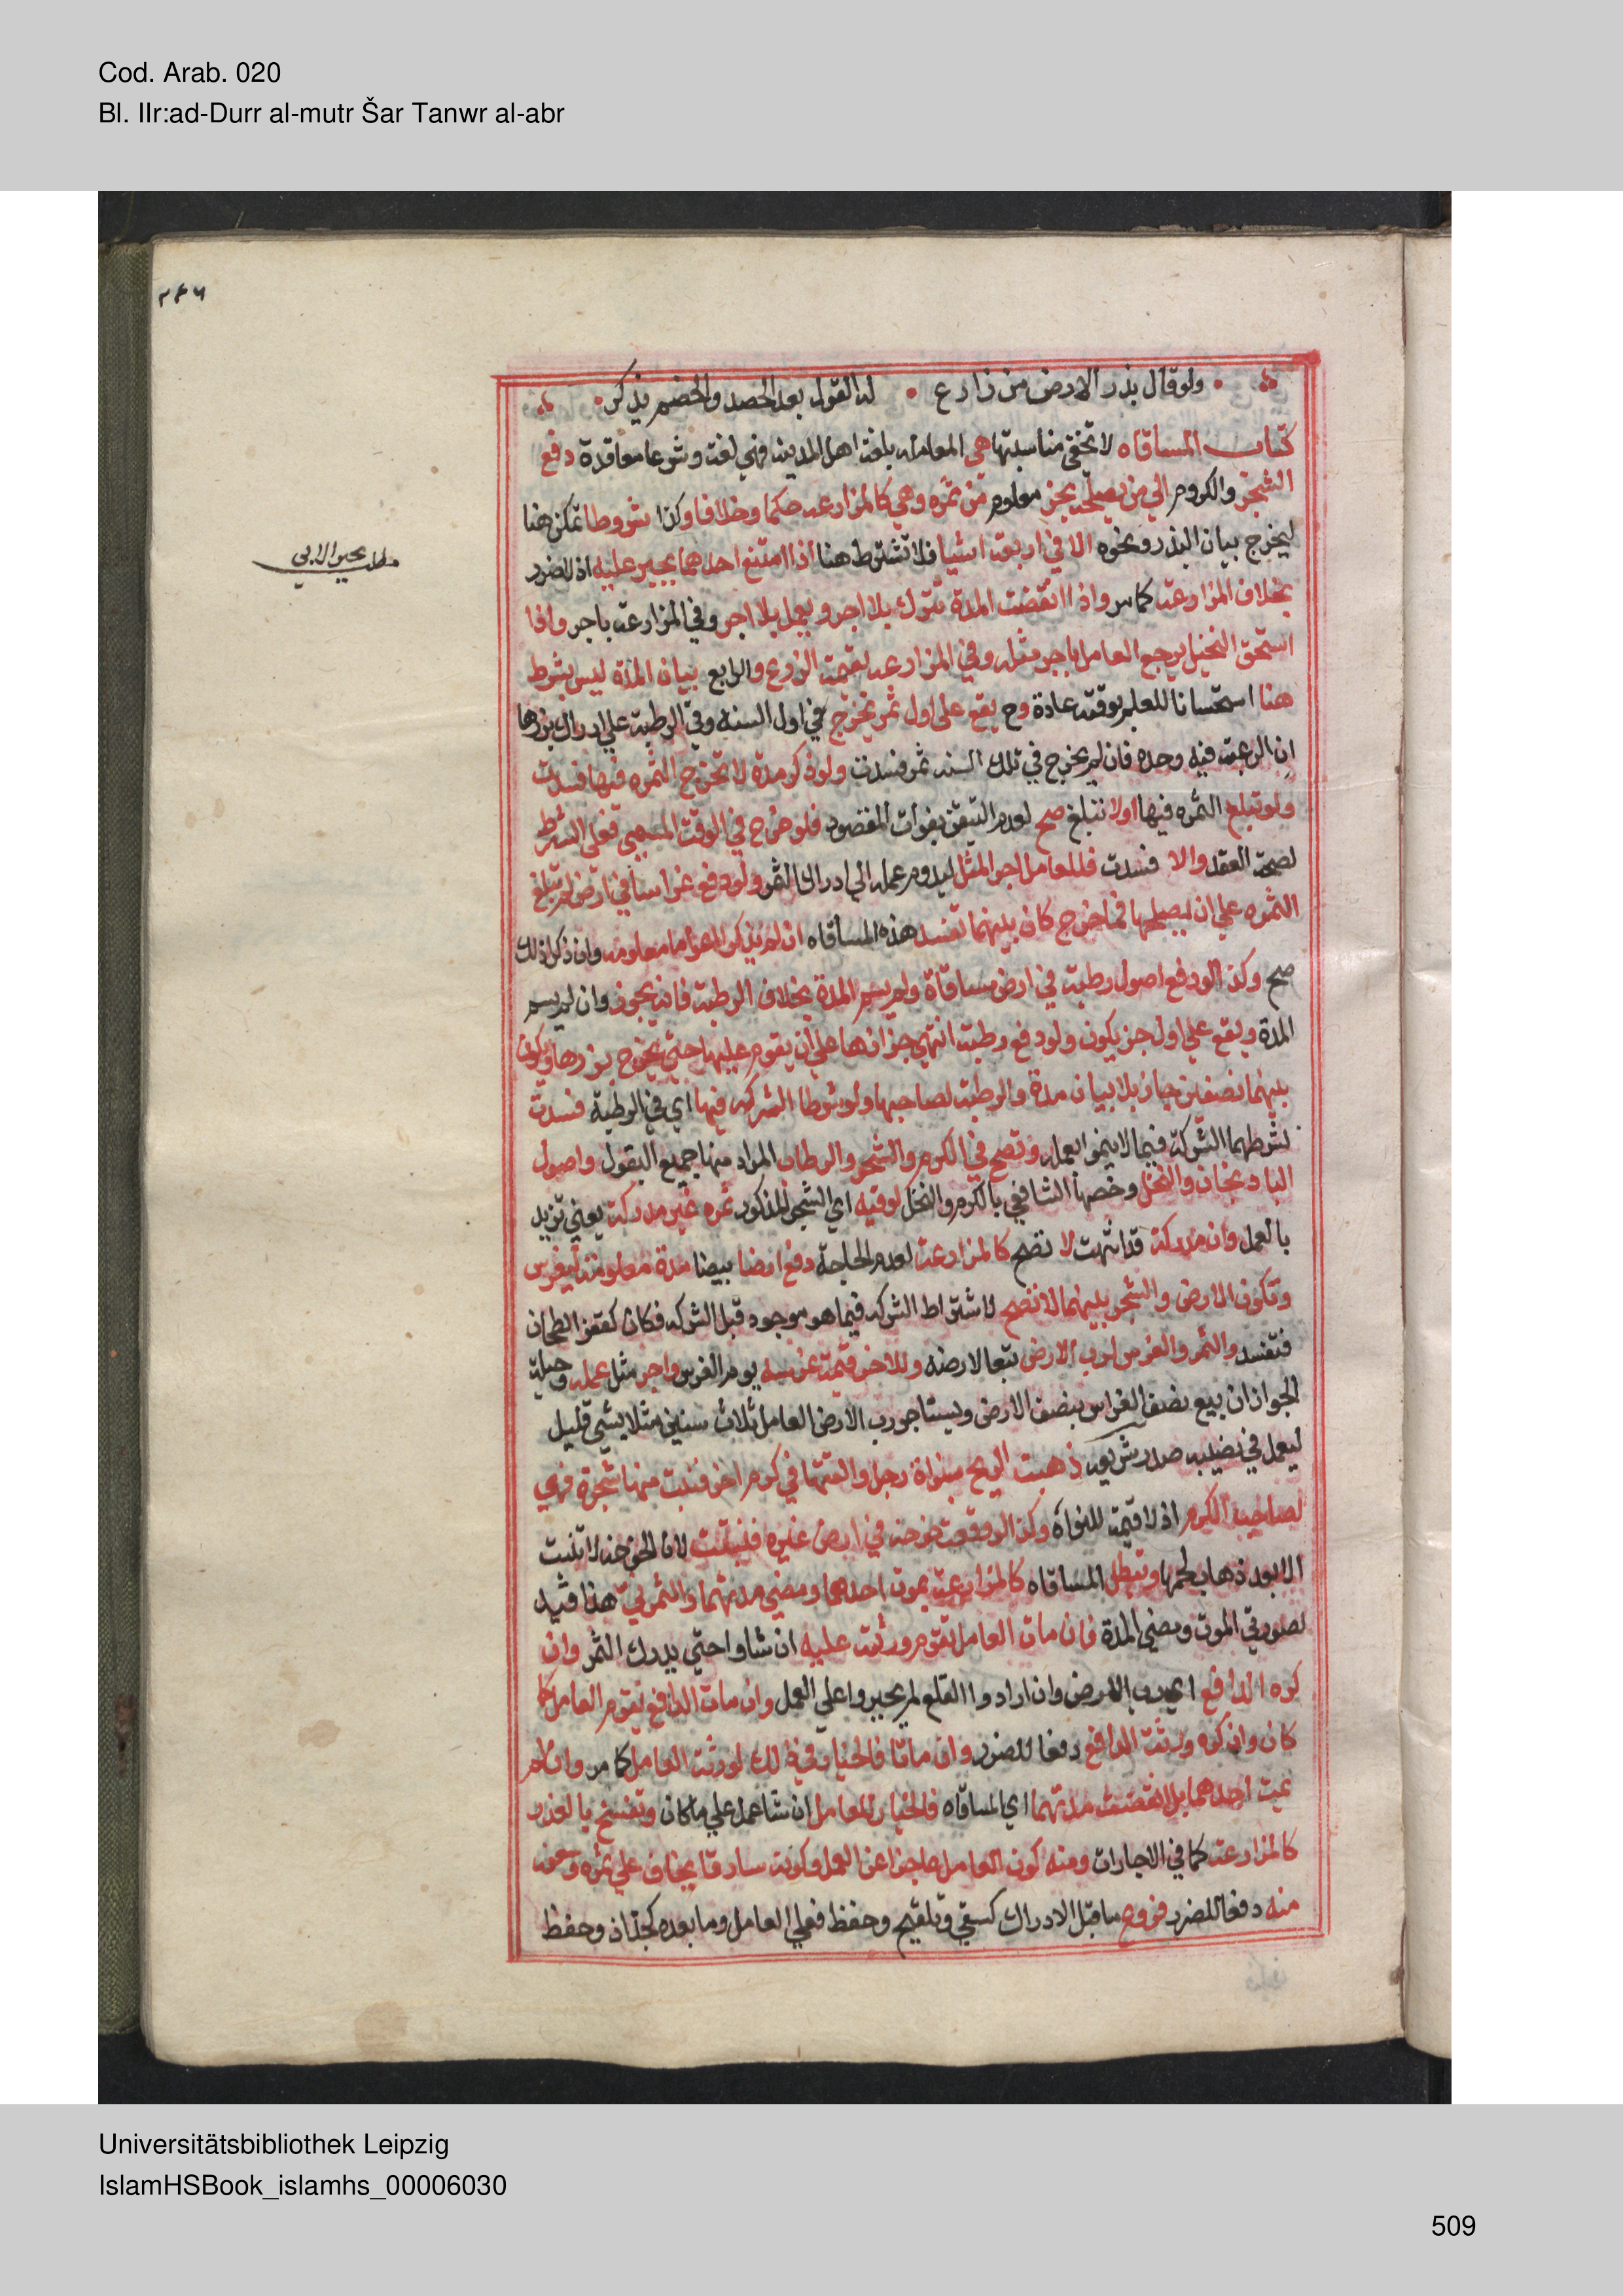 Cod. Arab. 020
Bl. IIr:ad-Durr al-mutr Šar Tanwr al-abr
ولو قال بذر الارض من زارع • له القول بعد الحصد والخصم يذكر
كتاب المساقاه لا تخفى مناسبتها هى المعامله بلغة اهل المدينه فهي لغة وشرعا معاقدة دفع
الشجر والكروم الي من يصلحه بجز معلوم من ثمره وهي كالمزارعه حكما وخلافا وكذا شروطا تمكن هنا
ليخرج بيان البذر ونحوه الا في اربعة اشيا فلا تشترط هنا اذا امتنع احدهما يجبر عليه اذ لا ضرر
مطلب يجبر الابي
بخلاف المزارعة كما مر واذا انقضت المدة تترك بلا اجر ويعمل بلا اجر وفي المزارعة باجر واذا
استحق النخيل يرجع العامل باجر مثله وفي المزارعه بقيمة الزرع والرابع بيان المدة ليس بشرط
هنا استحسانا للعلم بوقته عادة وح يقع على اول ثمر يخرج في اول السنه وفي الرطبة علي ادراك بزرها
ان الرغبة فيه وحده فان لم يخرج في تلك السنه ثمر فسدت ولو ذكر مدة لا تخرج الثمره فيها فسدت
ولو تبلغ الثمره فيها اولا تبلغ صح لعدم التيقن بفوات المقصود فلو خرج في الوقت المسمي فعلى الشرط
لصحة العقد والا فسدت فللعامل اجر المثل ليدوم عمله الي ادراك الثمر ولو دفع غراسا في ارض لم تبلغ
الثمره علي ان يصلحها فما خرج كان بينهما تفسد هذه المساقاه ان لم يذكر اعواما معلومه وان ذكر ذلك
صح وكذا لو دفع اصول رطبة في ارض مساقاة ولم يسم المدة بخلاف الرطبة فانه يجوز وان لم يسم
المدة ويقع علي اول جز يكون ولو دفع رطبة انتهي جزازها علي ان يقوم عليها حتى يخرج بزرها ويكون
بينهما نصفين جاز بلا بيان مدة والرطبة لصاحبها ولو شرطا الشركه فيها اي في الرطبة فسدت
لشرطهما الشركة فيما لا ينمو ابعمله وتصح في الكرم والشجر والرطاب المراد منها جميع البقول واصول
الباذنجان والنخل وخصها الشافعي بالكرم والنخل لو فيه اي الشجر المذكور ثمره غير مدركة يعني تزيد
بالعمل وان مدركة قد انتهت لا تصح كالمزارعة لعدم الحاجة دفع ارضا بيضا مدة معلومة ليغرس
وتكون الارض والشجر بينهما لا تصح لاشتراط الشركه فيما هو موجود قبل الشركه فكان كقفيز الطحان
فتفسد والثمر والغرس لرب الارض تبعا لارضه وللاخر قيمة غرسه يوم الغرس واجر مثل عمله وحيلة
الجواز ان يبيع نصف الغراس بنصف الارض ويستاجر رب الارض العامل ثلاث سنين مثلا بشي قليل
ليعمل في نصيبه صدر شريعه ذهبت الريح بنواة رجل والقتها في كرم اخر فنبت منها شجرة فهي
لصاحب الكرم اذ لا قيمة للنواه وكذا لو وقعت خوخه في ارض غيره فنبتت لان الخوخه لا تنبت
الا بعد ذهاب لحمها وتبطل المساقاه كالمزارعة بموت احدهما ومضي مدتهما والثمر ني هذا قيد
لصورتي الموت ومضي المدة فان مات العامل تقوم ورثته عليه ان شاوا حتي يدرك الثمر وان
كره الدافع اي رب الارض وان ارادوا القلع لم يجبروا علي العمل وان مات الدافع يقوم العامل كما
كان وان كره ورثة الدافع دفعا للضرر وان ماتا فالخيار في ذلك لورثة العامل كما مر وان لم
يمت احدهما بل انقضت مدتهما اي المساقاه فالخيار للعامل ان شا عمل علي ما كان وتفسخ بالعذر
كالمزارعة كما في الاجارات ومنه كون العامل عاجزا عن العمل وكونه سارقا يخاف علي ثمره وسعفه
منه دفعا للضرر فروع ما قبل الادراك كسقي وتلقيح وحفظ فعلي العامل وما بعده كجذاذ وحفظ
Universitätsbibliothek Leipzig
IslamHSBook_islamhs_00006030
509